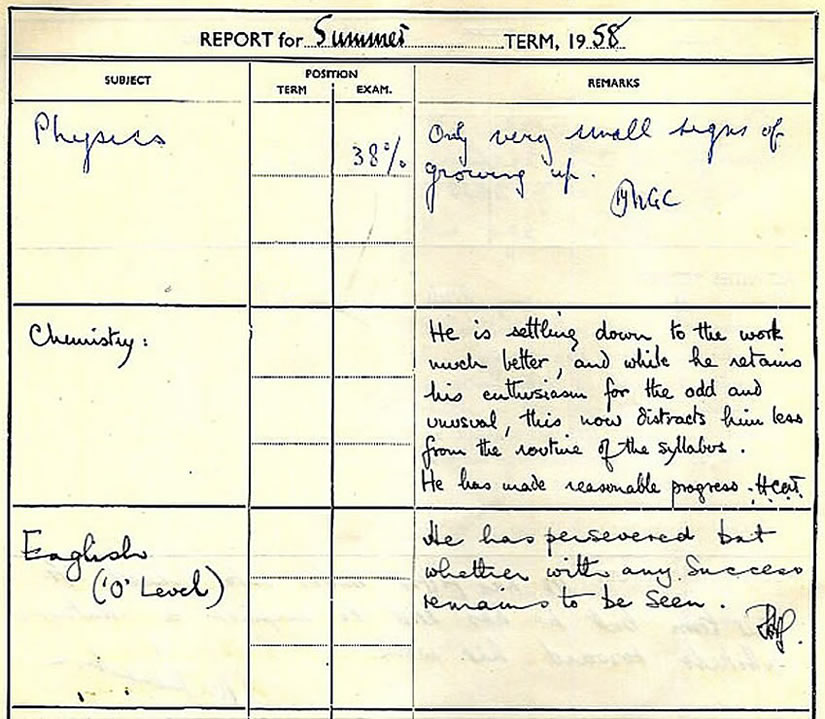 REPORT for Summer TERM, 1958
SUBJECT
POSITION
TERM
EXAM.
REMARKS
Physics
38%
Only very small signs of
growing up.
Chemistry:
He is settling down to the work
much better, and while he retains
his enthusiasm for the odd and
unusual, this now distracts him less
from the routine of the syllabus.
He has made reasonable progress.
English
('O' Level)
He has persevered but
whether with any success
remains to be seen.